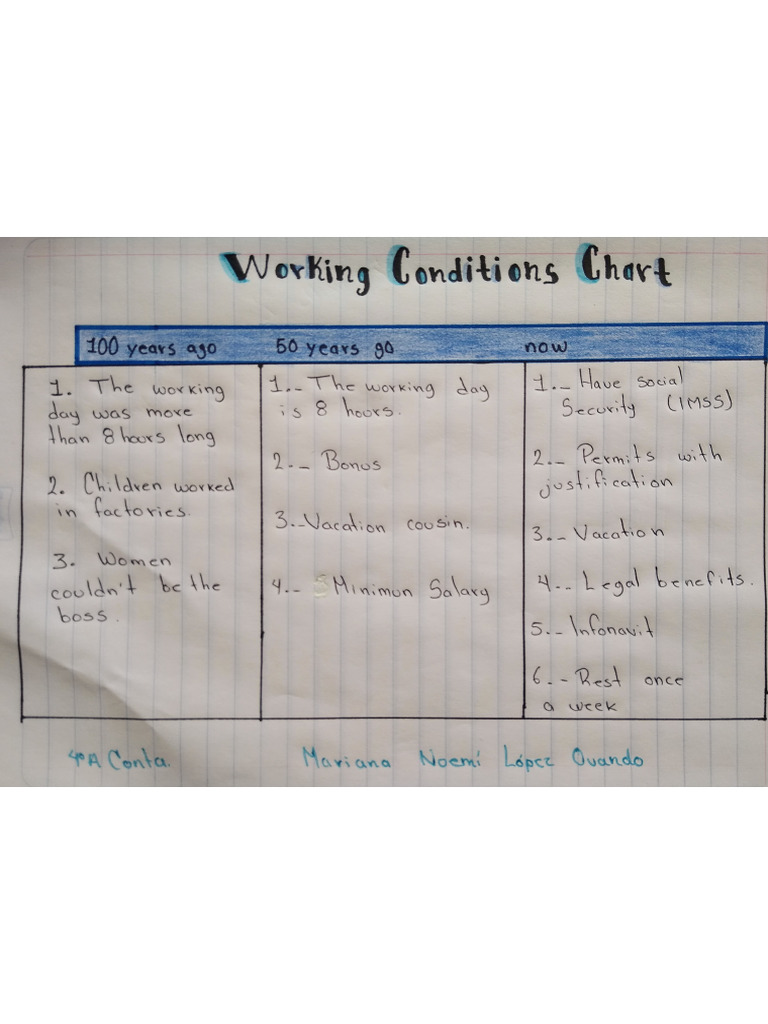 Working Conditions Chart
100 years ago
50 years go
now
1. The working
day was more
than 8 hours long
2. Children worked
in factories.
3. Women
couldn't be the
boss.
1.- The working day
is 8 hours.
2.- Bonus
3.- Vacation cousin.
4.- Minimun Salary
1.- Have social
Security (IMSS)
2.- Permits with
justification
3.- Vacation
4.- Legal benefits.
5.- Infonavit
6.- Rest once
a week
4ºA Conta.
Mariana Noemí López Ovando